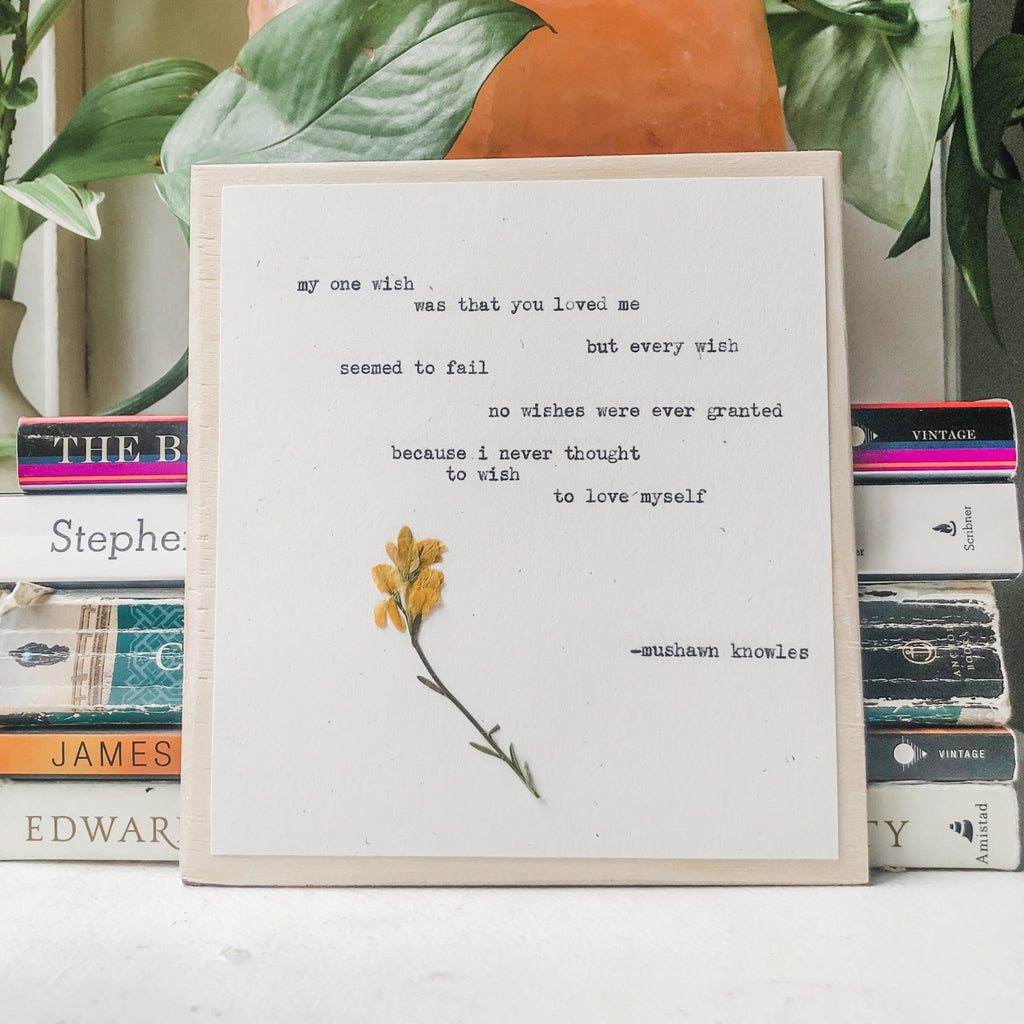 my one wish
was that you loved me
but every wish
seemed to fail
no wishes were ever granted
because i never thought
to wish
to love myself
-mushawn knowles
THE B
VINTAGE
Stephe
Scribner
ANCHOR
BOOKS
JAMES
VINTAGE
EDWAR
TY
Amistad